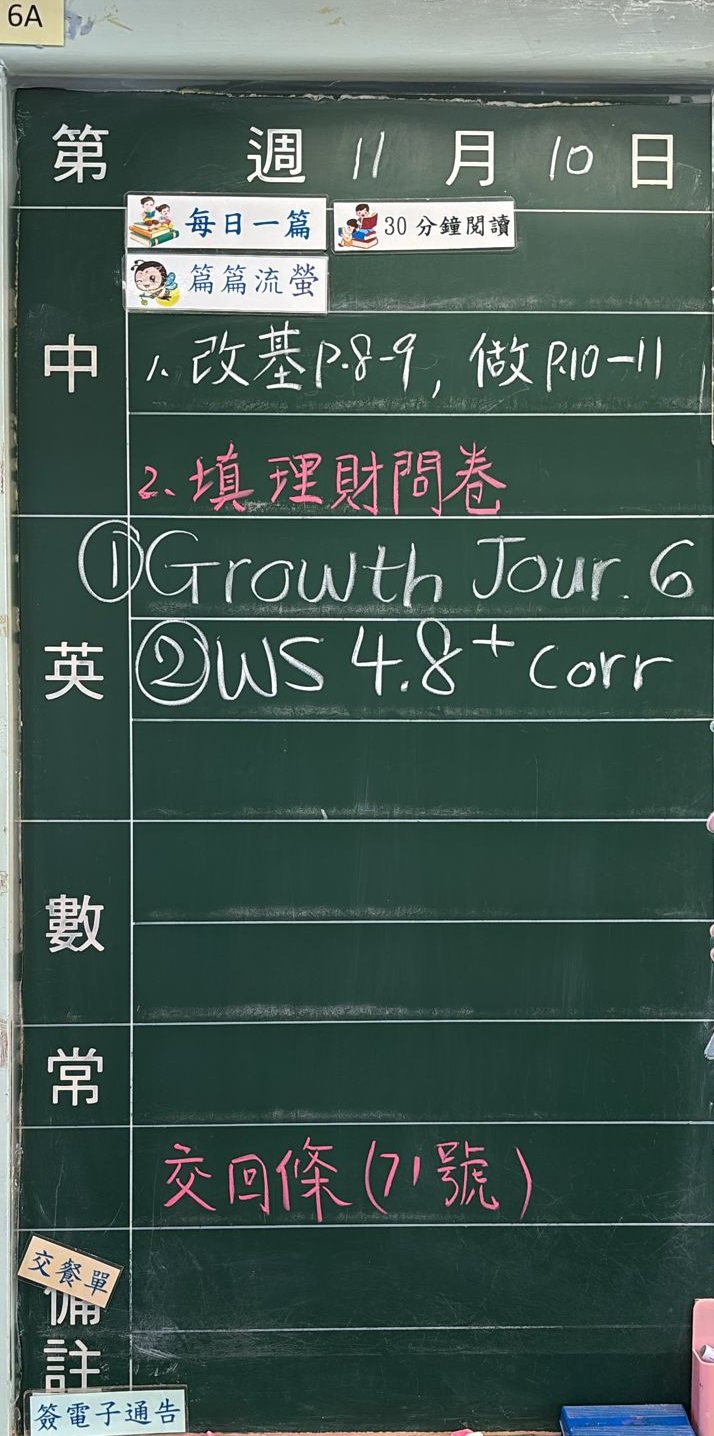 6A
第 週 11 月 10 日
每日一篇 30分鐘閱讀
篇篇流螢
中
1. 改基P.8-9, 做P.10-11
2. 填理財問卷
英
①Growth Jour. 6
②WS 4.8+corr
數
常
交回條(71號)
交餐單
備註
簽電子通告